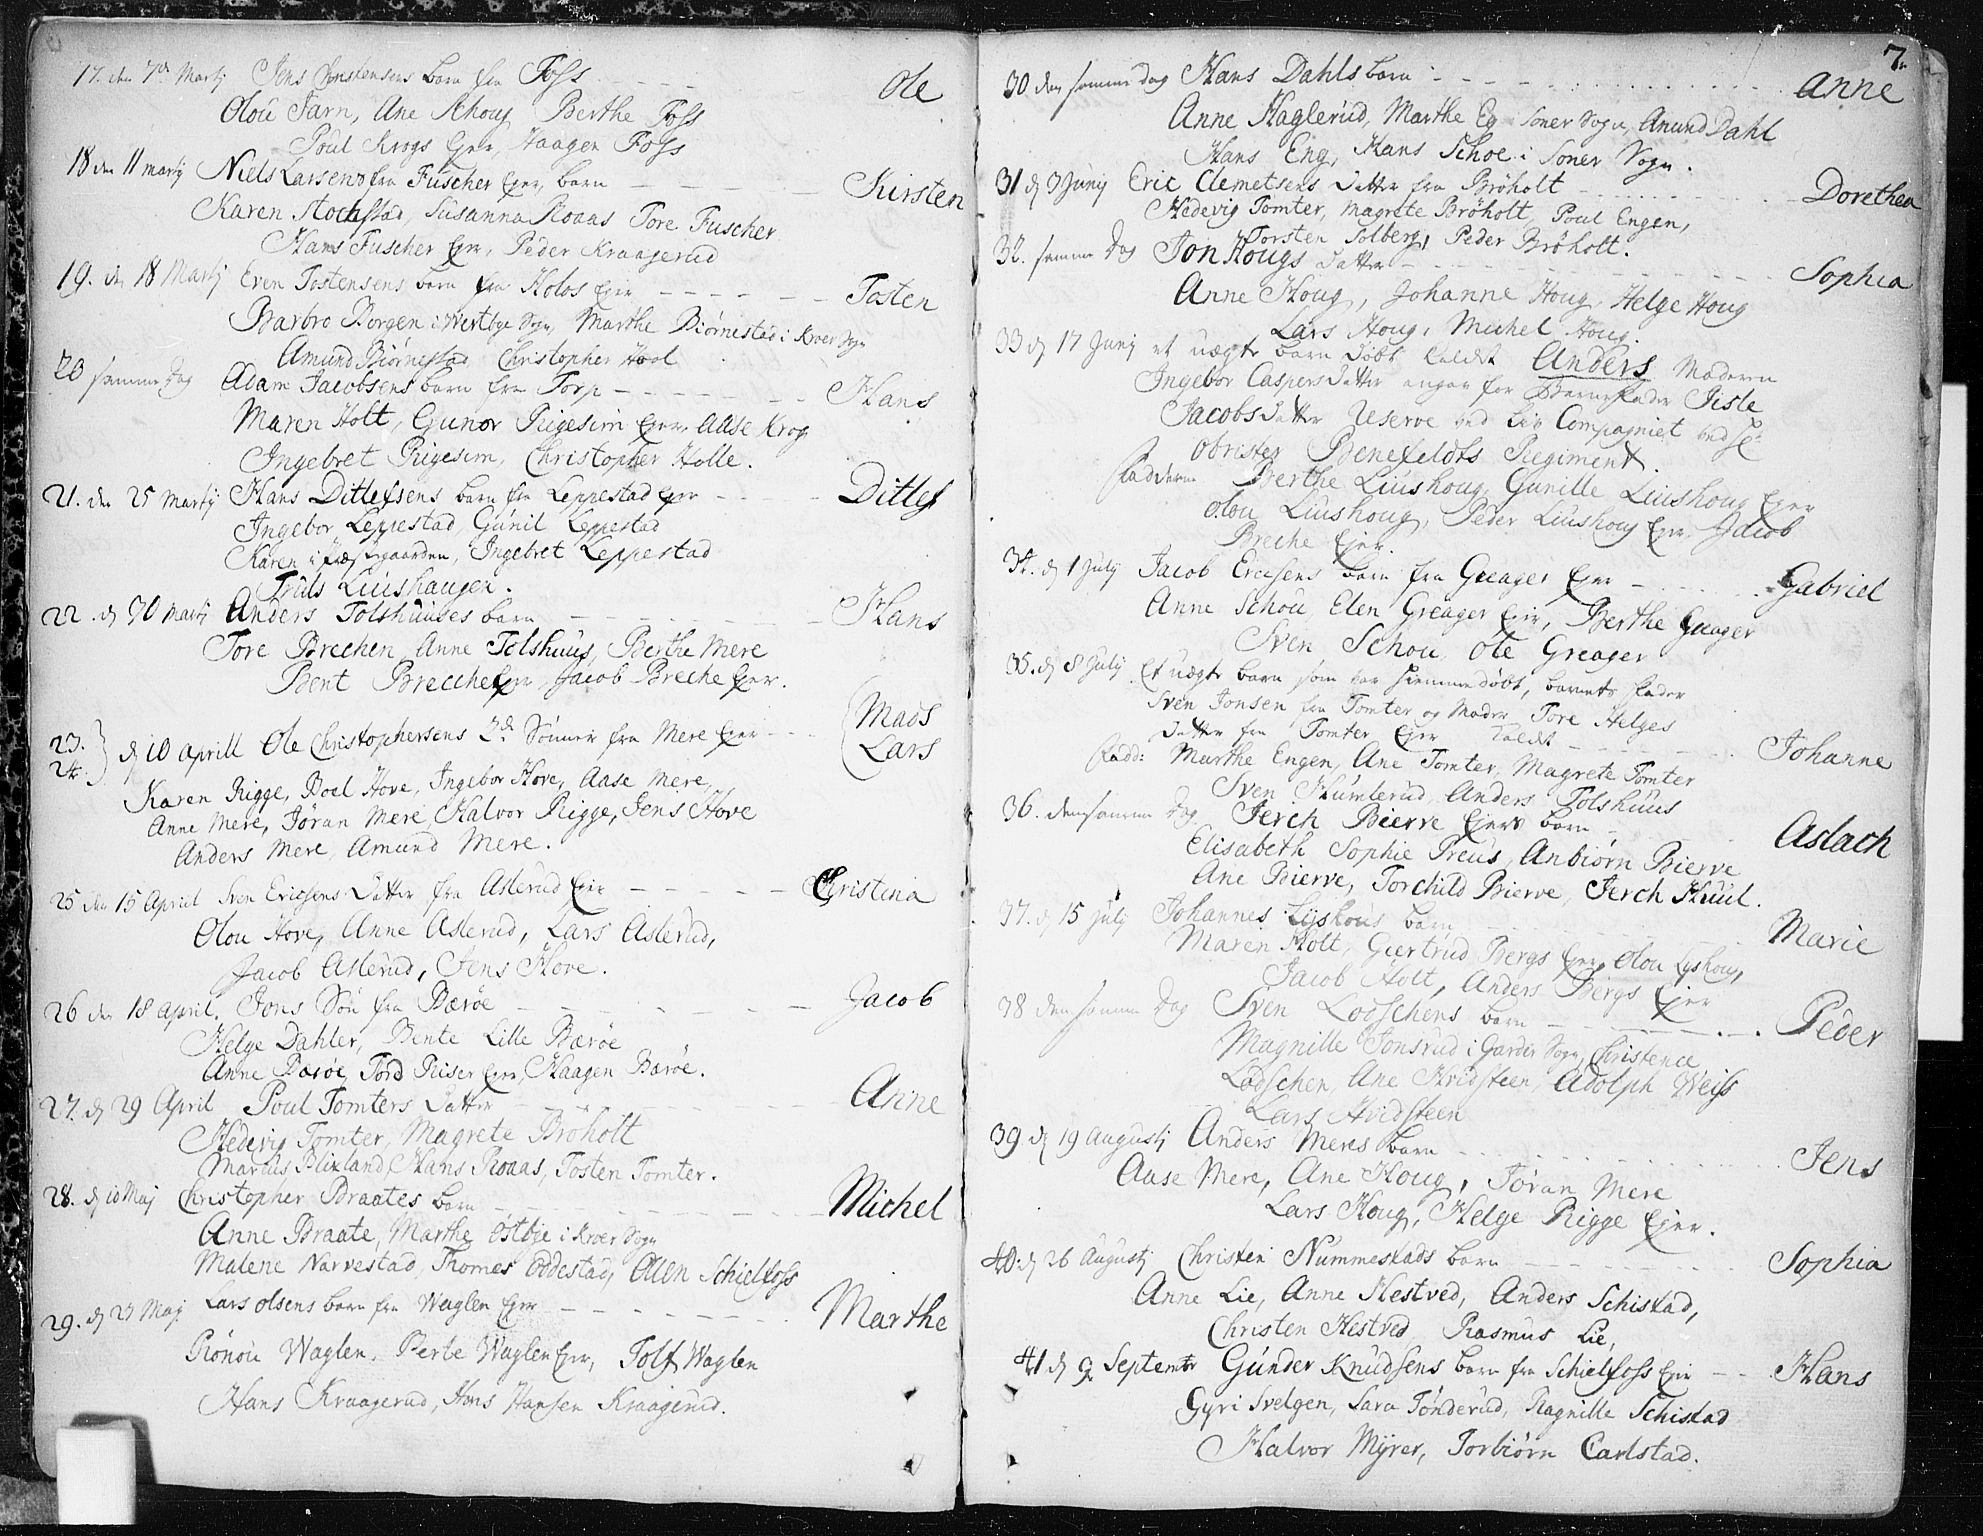 17. den 7de Martij Jens Christensens barn fra Foss - - - Ole
Olou Jarn, Ane Schoug Berthe Foss
Poul Krogs Ejer, Haagen Foss
18 den 11 Martij Niels Larsens fra Fuscher Ejer, barn - - - - - Kirsten
Karen Stochstad, Susanna Roaas Tore Fuscher
Hans Fuscher Ejer, Peder Kraagerud
19. den 18 Martij Even Tostensens barn fra Holos Ejer - - - - - - Tosten
Barbro Borgen i Westbye Sogn, Marthe Biørnestad i Kroer Sogn
Amund Biørnestad Christopher Hool
20 samme Dag Adam Jacobsens barn fra Torp - - - - - - - Hans
Maren Holt, Gunor Rigesim Ejer, Aase Krog
Ingebret Rigesim, Christopher Holle.
21. den 25 Martij Hans Ditlefsens barn fra Leppestad Ejer - - - - - Ditlef
Ingebor Leppestad, Gunil Leppestad
Karen i Præstgaarden, Ingebret Leppestad
Truls Liushaugen.
22. d. 30 Martij Anders Tolshuuses barn - - - - - - Hans
Tore Brechen Anne Tolshuus, Berthe Mere
Bent Brecche Ejer, Jacob Breche Ejer.
23. Mads
24. d 10 Aprill Ole Christophersens 2de Sønner fra Mere Ejer - - - Lars
Karen Rigge, Boel Hove, Ingebor Hove, Aase Mere,
Anne Mere, Jøran Mere, Halvor Rigge, Jens Hove
Anders Mere, Amund Mere.
25 den 15 April Sven Ericsens Datter fra Aslerud Ejer - - - - - Christina
Olou Hove, Anne Aslerud, Lars Aslerud,
Jacob Aslerud, Jens Hove.
26 den 18 April. Jons Søn fra Bærøe - - - - - - Jacob
Helge Dahler, Bente Lille Bærøe
Anne Bærøe, Tord Riiser Ejer, Haagen Bærøe.
27. d 29 April Poul Tomters Datter - - - - - - Anne
Hedevig Tomter, Magrete Brøholt
Marcus Blixland, Hans Roaas, Tosten Tomter.
28. d 10 Maj Christopher Braates barn - - - - - - Michel
Anne Braate, Marthe Østbye i Kroer Sogn
Malene Narvestad, Thomes Oddestad, Ouen Schielfoss
29. d 27 Maj. Lars Olsens barn fra Waglen Ejer - - - - - - Marthe
Rønou Waglen, Perte Waglen Ejer, Tolf Waglen
Hans Kraagerud, Hans Hansen Kraagerud.
7.
30 den samme Dag Hans Dahls barn - - - - Anne
Anne Haglerud, Marthe Eg i Soner Sogn, Amund Dahl
Hans Eng, Hans Schoe i Soner Sogn.
31 d 3 Junij Eric Clemetsens Datter fra Brøholt - - - - Dorethea
Hedevig Tomter, Magrete Brøholt, Poul Engen,
Torsten Solberg, Peder Brøholt.
32. samme Dag Jon Hougs Datter - - - - - - Sophia
Anne Houg, Johanne Houg, Helge Houg
Lars Houg, Michel Houg.
33 d 17 Junij et uægte barn Døbt kaldet Anders Moderen
Ingebor Caspersdatter angav for Barnefader Jisle
Jacobsdatter Reserve ved Liv Compagniet ved Hr
Obrister Benefeldts Regiment.
Faddere Berthe Liushoug, Gunille Liushoug Ejer
Olou Liushoug, Peder Liushoug Ejer, Jacob
Breche Ejer.
34. d 1 Julij Jacob Ericsens barn fra Greager Ejer - - - - Gabriel
Anne Schou, Elen Greager Ejer, Berthe Greager
Sven Schou, Ole Greager
35. d 8 Julij Et uægte barn som var hiemmedøbt, barnets Fader
Sven Jonsen fra Tomter og Moder Tore Helges
Datter fra Tomter Ejer kaldet - - - - Johanne
Fadd: Marthe Engen, Ane Tomter, Magrete Tomter
Sven Humlerud, Anders Tolshuus
36. den samme Dag Jerch Bierve Ejers barn - - - Aslach
Elisabeth Sophie Preus, Anbiørn Bierve
Ane Bierve, Torchild Bierve, Jerch Huul.
37. d 15 Julij Johannes Lyshous barn - - - - Marie
Maren Holt, Giertrud Bergs Ejer, Olou Lyshoug,
Jacob Holt, Anders Bergs Ejer
38 den samme Dag Sven Lodschens barn - - - - - Peder
Magnille Jonsrud i Garder Sogn, Christence
Lodschen, Ane Hvidsteen, Adolph Weiss
Lars Hvidsteen
39 d 19 Augustj Anders Meres barn - - - - Jens
Aase Mere, Ane Houg, Jøran Mere
Lars Houg, Helge Rigge Ejer.
40. d 26 Augustj Christen Nummestads barn - - - - Sophia
Anne Lie, Anne Hestved, Anders Schistad,
Christen Hestved Rasmus Lie,
41 d 9 Septembr Gunder Knudsens barn fra Schielfoss Ejer - - - Hans
Gyri Svelgen, Sara Tønderud, Ragnille Schistad
Halvor Myrer, Torbiørn Carlstad.